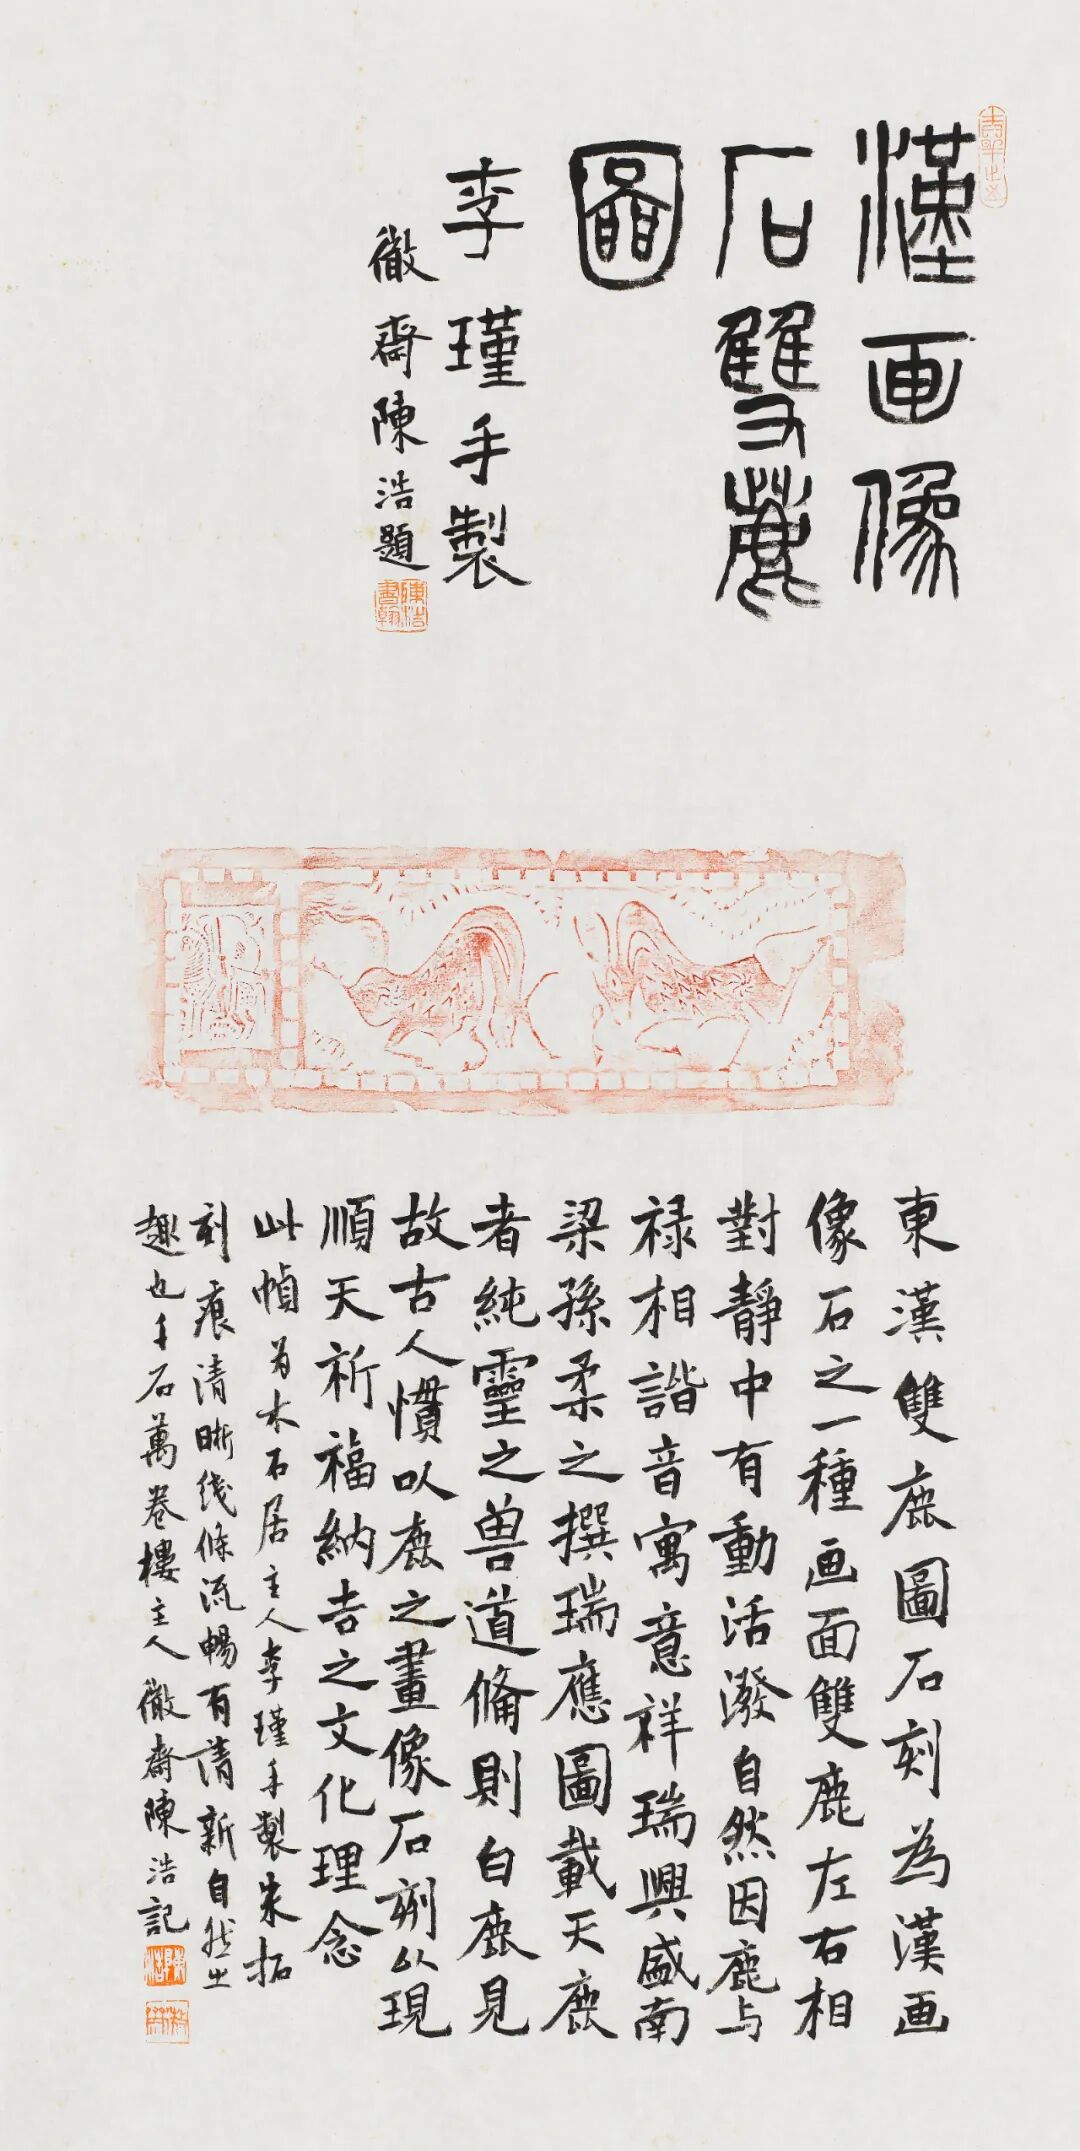 漢画像
石雙鹿
圖
李瑾手製
徹齋陳浩題
東漢雙鹿圖石刻為漢画
像石之一種画面雙鹿左右相
對静中有動活潑自然因鹿与
禄相諧音寓意祥瑞興盛南
梁孫柔之撰瑞應圖載天鹿
者純靈之兽道備則白鹿見
故古人慣以鹿之畫像石刻以現
順天祈福納吉之文化理念
此幀为木石居主人李瑾手製朱拓
刻痕清晰线條流暢有清新自然之
趣也千石萬卷樓主人徹齋陳浩記